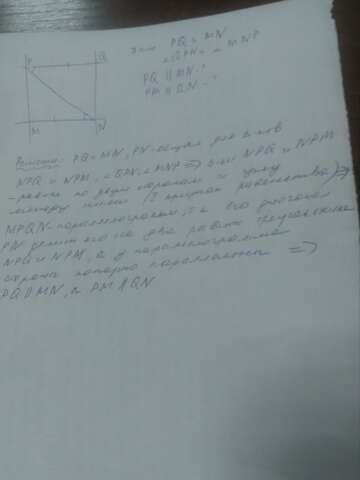 P Q
M N
PQ = MN
∠QPN = ∠MNP
PQ || MN - ?
PM || QN - ?
Решение: PQ = MN, PN - общая для Δ-ков
NPQ и NPM, ∠QPN = ∠MNP => Δ-ки NPQ и NPM
- равны по двум сторонам и углу
между ними (I признак равенства) =>
MPQN - параллелограмм, т.к. его диагональ
PN делит его на два равных треугольника
NPQ и NPM, а у параллелограмма
стороны попарно параллельны =>
PQ || MN, а PM || QN